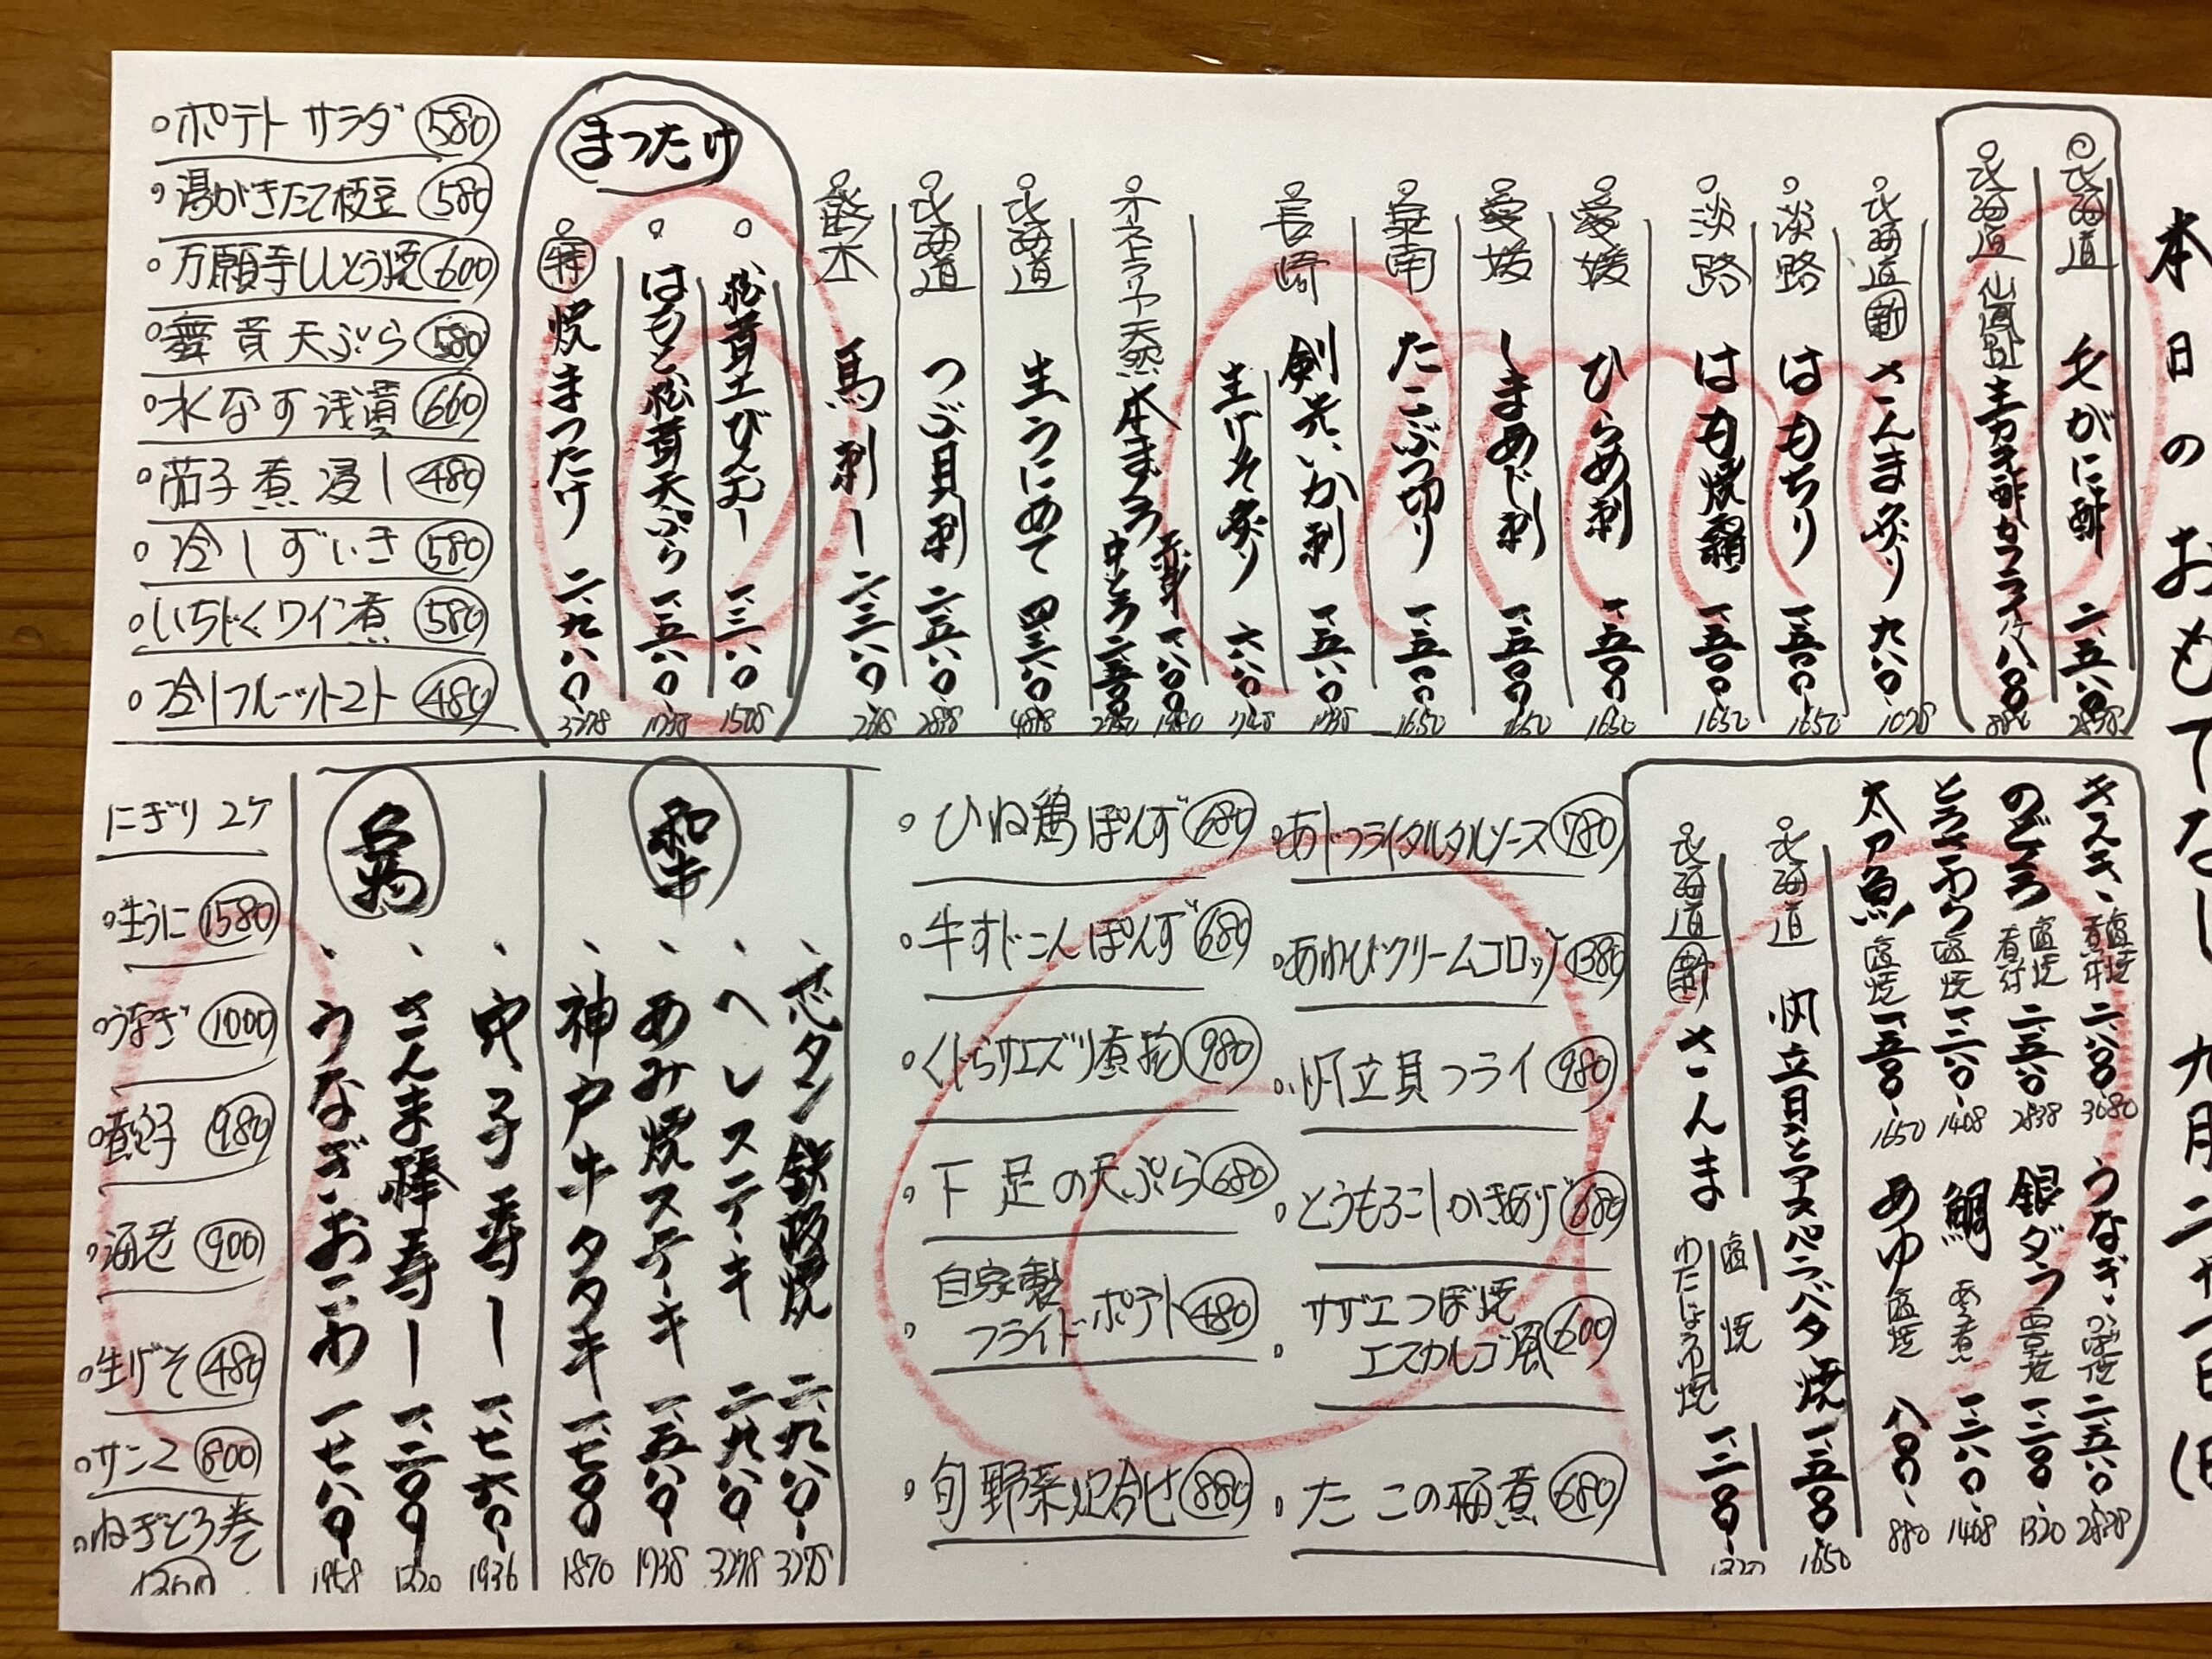 本日のおもてなし 九月二十一日(日
北海道 毛がに酢 二、五八〇 2838
北海道 仙鳳趾 生カキ酢カフライ 八〇〇 880
北海道 新 さんま炙り 九八〇 1078
淡路 はもちり 一、五〇〇 1650
淡路 はも焼霜 一、五〇〇 1650
愛媛 ひらめ刺 一、五〇〇 1650
愛媛 しまあじ刺 一、五〇〇 1650
泉南 たこぶつ切り 一、五〇〇 1650
長崎 剣先いか刺 一、五八〇 1738
生げそ炙り 六八〇 748
天然 本まぐろ
赤身 一、八〇〇 1980
中とろ 二、五〇〇 2750
北海道 生うにめて 四、三八〇 4818
北海道 つぶ貝刺 二、五八〇 2838
熊本 馬刺し 二、三八〇 2618
まつたけ
松茸土びんむし 一、三八〇 1508
はもと松茸天ぷら 一、五八〇 1738
特 焼まつたけ 二、九八〇 3278
ポテトサラダ 580
湯がきたて枝豆 580
万願寺ししとう焼 600
舞茸天ぷら 580
水なす浅漬 660
茄子煮浸し 480
冷しずいき 580
いちじくワイン煮 580
冷しフルーツトマト 480
キスキ 塩焼 煮付 二、八〇〇 3080
のどぐろ 塩焼 煮付 二、五八〇 2838
とろさわら 塩焼 一、二八〇 1408
太刀魚 塩焼 一、五〇〇 1650
うなぎ かば焼 二、五八〇 2838
銀ダラ 西京焼 一、二〇〇 1320
鯛 あら煮 一、二八〇 1408
あゆ 塩焼 八〇〇 880
北海道 帆立貝とアスパラバター焼 一、五〇〇 1650
北海道 新 さんま 塩焼 わたしょうゆ焼 一、二〇〇 1320
あじフライタルタルソース 780
あわびクリームコロッケ 1380
帆立貝フライ 980
とうもろこしかきあげ 680
サザエつぼ焼
エスカルゴ風 600
たこの梅煮 680
ひね鶏ぽんず 680
牛すじこんぽんず 680
くじらサエズリ煮物 980
下足の天ぷら 680
自家製
フライドポテト 480
旬野菜炊合せ 880
和牛
芯タン鉄板焼 二、九八〇 3278
ヘレステーキ 二、九八〇 3278
あみ焼ステーキ 一、五八〇 1738
神戸牛タタキ 一、七〇〇 1870
名物
穴子寿し 一、七六〇 1936
さんま棒寿し 一、二〇〇 1320
うなぎおこわ 一、七八〇 1958
にぎり 2ケ
生うに 1580
うなぎ 1000
煮穴子 980
海老 900
生げそ 480
サンマ 800
ねぎとろ巻